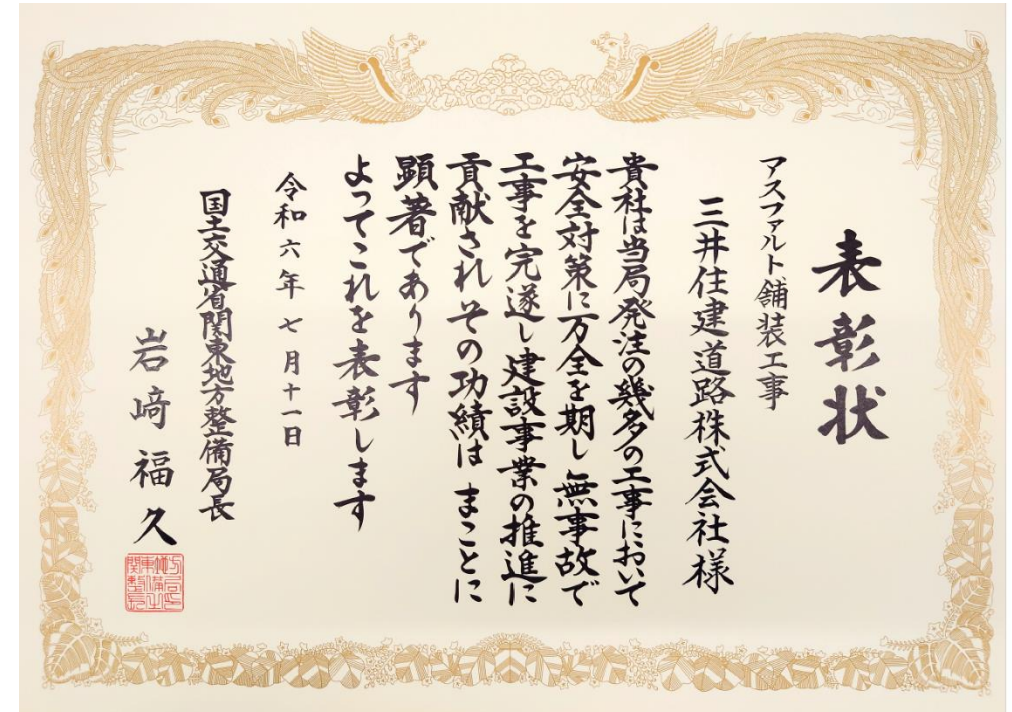 表彰状
アスファルト舗装工事
三井住建道路株式会社様
貴社は当局発注の幾多の工事において
安全対策に万全を期し無事故で
工事を完遂し建設事業の推進に
貢献されその功績はまことに
顕著であります
よってこれを表彰します
令和六年七月十一日
国土交通省関東地方整備局長
岩﨑福久